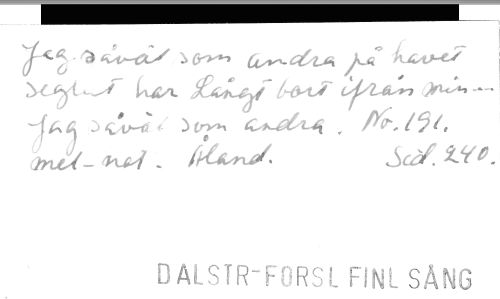 Jag såväl som andra på havet
seglat har Långt bort ifrån min
Jag såväl som andra. No. 191.
mel-not. Åland. Sid. 240.
DALSTR-FORSL FINL SÅNG